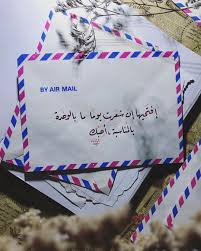 BY AIR MAIL
إفتحيها إن شعرتِ يوما ما بالوحدة
بالمناسبة، أحبك